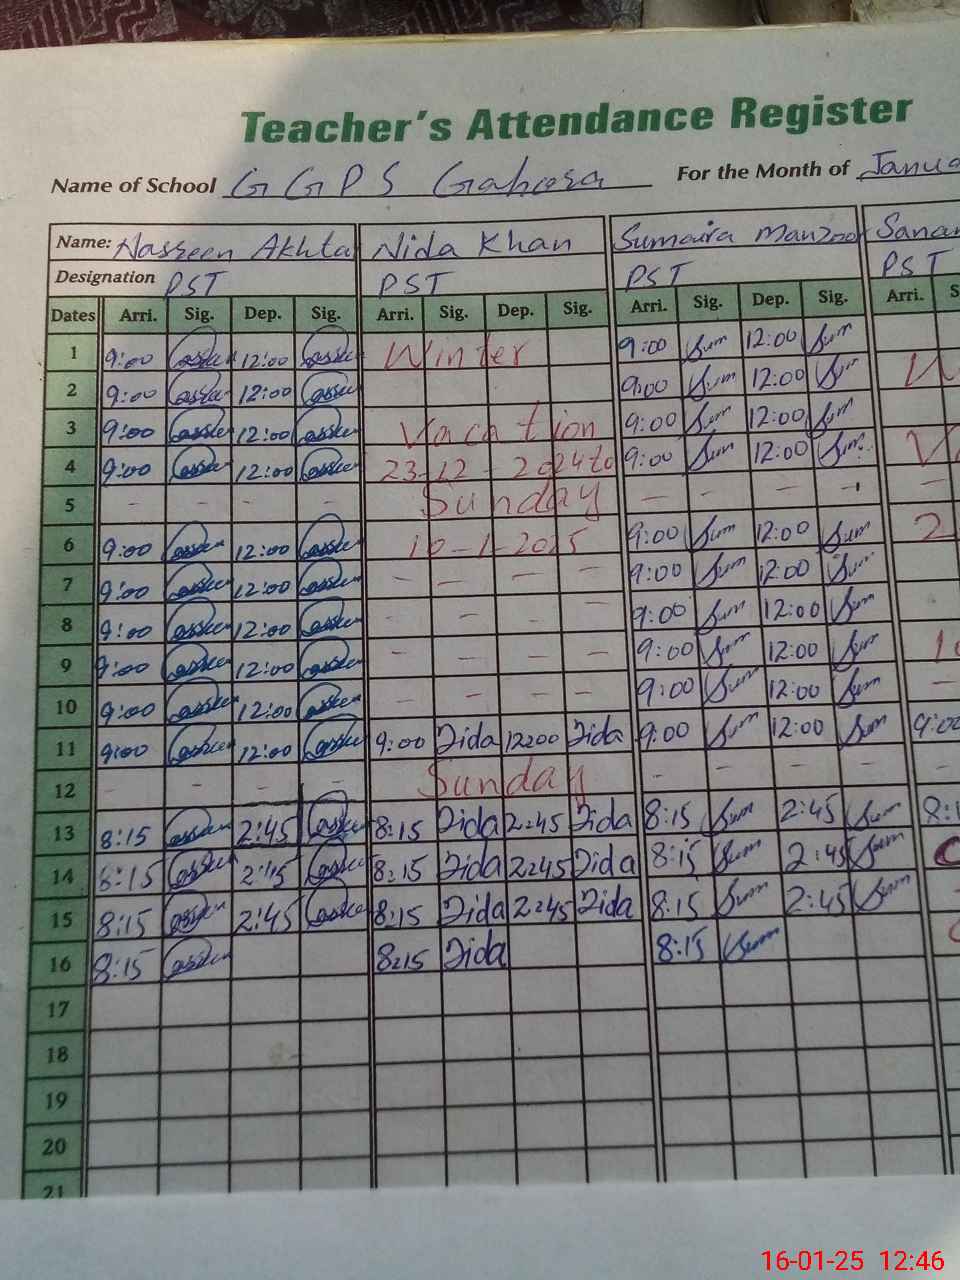 Teacher's Attendance Register
Name of School G G P S Gahora For the Month of Janua
Name: Nasreen Akhta Nida Khan Sumaira Manzoor Sanam
Designation PST PST PST PST
Dates Arri. Sig. Dep. Sig. Arri. Sig. Dep. Sig. Arri. Sig. Dep. Sig. Arri. S
1 9:00 12:00 Winter 9:00 Sum 12:00 Sum
2 9:00 12:00 9:00 Sum 12:00 Sum
3 9:00 12:00 Vacation 9:00 Sum 12:00 Sum
4 9:00 12:00 23-12-2024 to 9:00 Sum 12:00 Sum
5 - - - - Sunday - - - - -
6 9:00 12:00 10-1-2025 9:00 Sum 12:00 Sum 2
7 9:00 12:00 - - - - 9:00 Sum 12:00 Sum
8 9:00 12:00 - - - - 9:00 Sum 12:00 Sum
9 9:00 12:00 - - - - 9:00 Sum 12:00 Sum 1
10 9:00 12:00 - - - - 9:00 Sum 12:00 Sum -
11 9:00 12:00 9:00 Nida 12:00 Nida 9:00 Sum 12:00 Sum 9:00
12 - - - - Sunday - - - - -
13 8:15 2:45 8:15 Nida 2:45 Nida 8:15 Sum 2:45 Sum 8:1
14 8:15 2:45 8:15 Nida 2:45 Nida 8:15 Sum 2:45 Sum
15 8:15 2:45 8:15 Nida 2:45 Nida 8:15 Sum 2:45 Sum
16 8:15 8:15 Nida 8:15 Sum
17
18
19
20
21
16-01-25 12:46